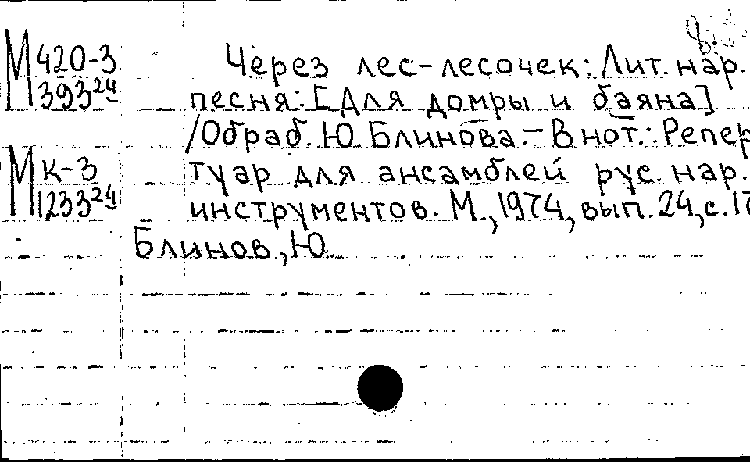 М 420-3
393 24
М К-3
1233 24
Через лес-лесочек: Лит. нар.
песня: [Для домры и баяна]
/Обраб. Ю Блинова.- В нот.: Репер
туар для ансамблей рус. нар.
инструментов. М., 1974, вып. 24, с. 17
Блинов, Ю